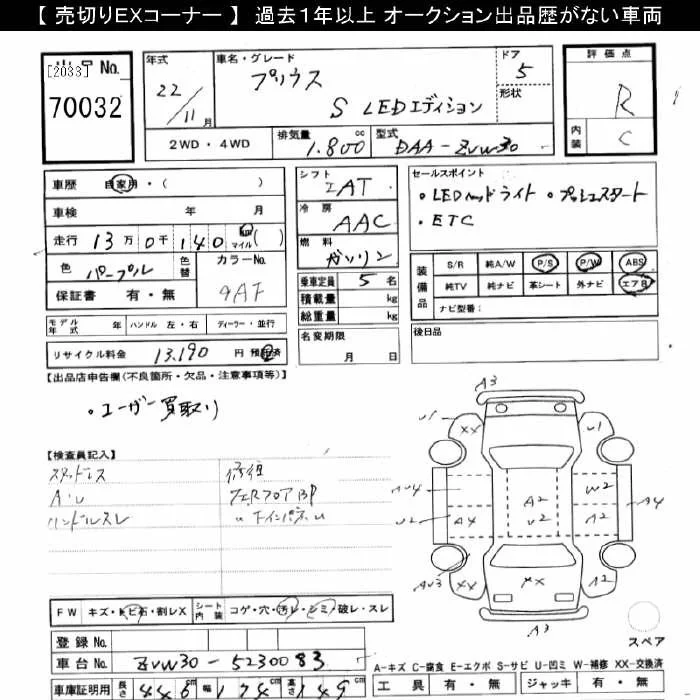 【 売切りEXコーナー 】 過去1年以上 オークション出品歴がない車両
[2033] 出品 No.
70032
年式 22/11月
車名・グレード プリウス
S LEDエディション
ドア 5
形状
2WD・4WD
排気量 1.800 cc
型式 DAA-ZVW30
評価点 R
内装 C
車歴 自家用・( )
車検 年 月
走行 13万0千140 km マイル ( )
色 パープル
色替
カラーNo. 9AF
保証書 有・無
モデル年式 年 ハンドル 左・右 ディーラー・並行
リサイクル料金 13.190 円 預託済
シフト IAT
冷房 AAC
燃料 ガソリン
乗車定員 5 名
積載量 kg
総重量 kg
名変期限
月 日
セールスポイント
・LEDヘッドライト ・プッシュスタート
・ETC
装備品
S/R 純A/W P/S P/W ABS
純TV 純ナビ 革シート 外ナビ エアB
ナビ型番:
後日品
【出品店申告欄(不良箇所・欠品・注意事項等)】
・ユーザー買取り
【検査員記入】
スタッドレス
ハンドルスレ
修復
FW キズ・トビ石・割レX
シート内装 コゲ・穴・汚レ・シミ・破レ・スレ
登録 No.
車台 No. ZVW30-5230083
車庫証明用 長さ 446 幅 174 高さ 149 cm
A3
U1
XX
U1
W2
A2
U2
A4
A2
A4
U2
AU3
XX
MX
A2
A3
スペア
A-キズ C-腐食 E-エクボ S-サビ U-凹ミ W-補修 XX-交換済
工具 有・無 ジャッキ 有・無